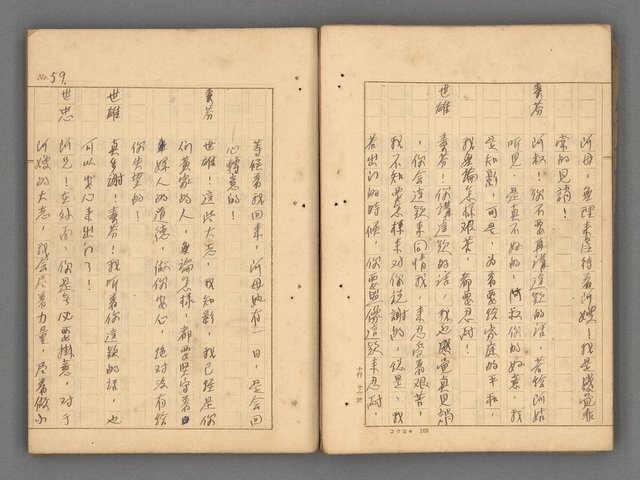 阿母,無理來看待着阿嫂!我是感覺非
常的見誚!
秀芬
阿叔!你不要再講這款的話,若給阿姑
聽見,是真不好的,阿叔你的好意,我
是知影,可是,為着要給家庭的平和,
我無論怎樣艱苦,都要忍耐!
世雄
秀芬!你講這款的話,我也感覺真見誚
,你會這款來同情我,來忍受着艱苦,
我不知要怎樣來對你說謝的,總是,我
若出門的時候,你要照像這款來忍耐
コクヨ 168
No. 59.
等候着我回來,阿母她有一日,是會回
心轉意的!
秀芬
世雄!這些大志,我知影,我已經是你
們黃家的人,無論怎樣,都要堅守着
媒人的道德,做你安心,絕對沒有給
你失望的!
世雄
真多謝!秀芬!我听着你這款的話,也
可以安心來出門了!
世忠
阿兄!在外面,你是免他要掛意,对于
阿嫂的大志,我会尽着力量,尽着做小